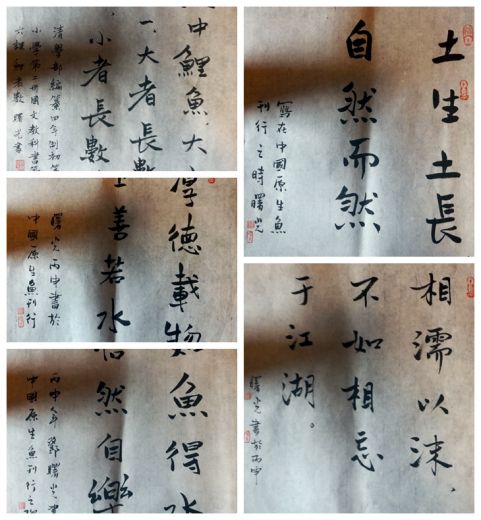 中鯉魚大
一大者長
小者長數
清學部編第四年制初等
小學第二冊國文教科書第
六課 鄧老數 曙光書
厚德載物
上善若水
曙光丙申書於
中國原生魚刊行
魚得水
怡然自樂
丙申年鄧曙光書
中國原生魚刊行之
土生土長
自然而然
寫在中國原生魚
刊行之時 曙光
相濡以沫、
不如相忘
于江湖。
曙光書於丙申